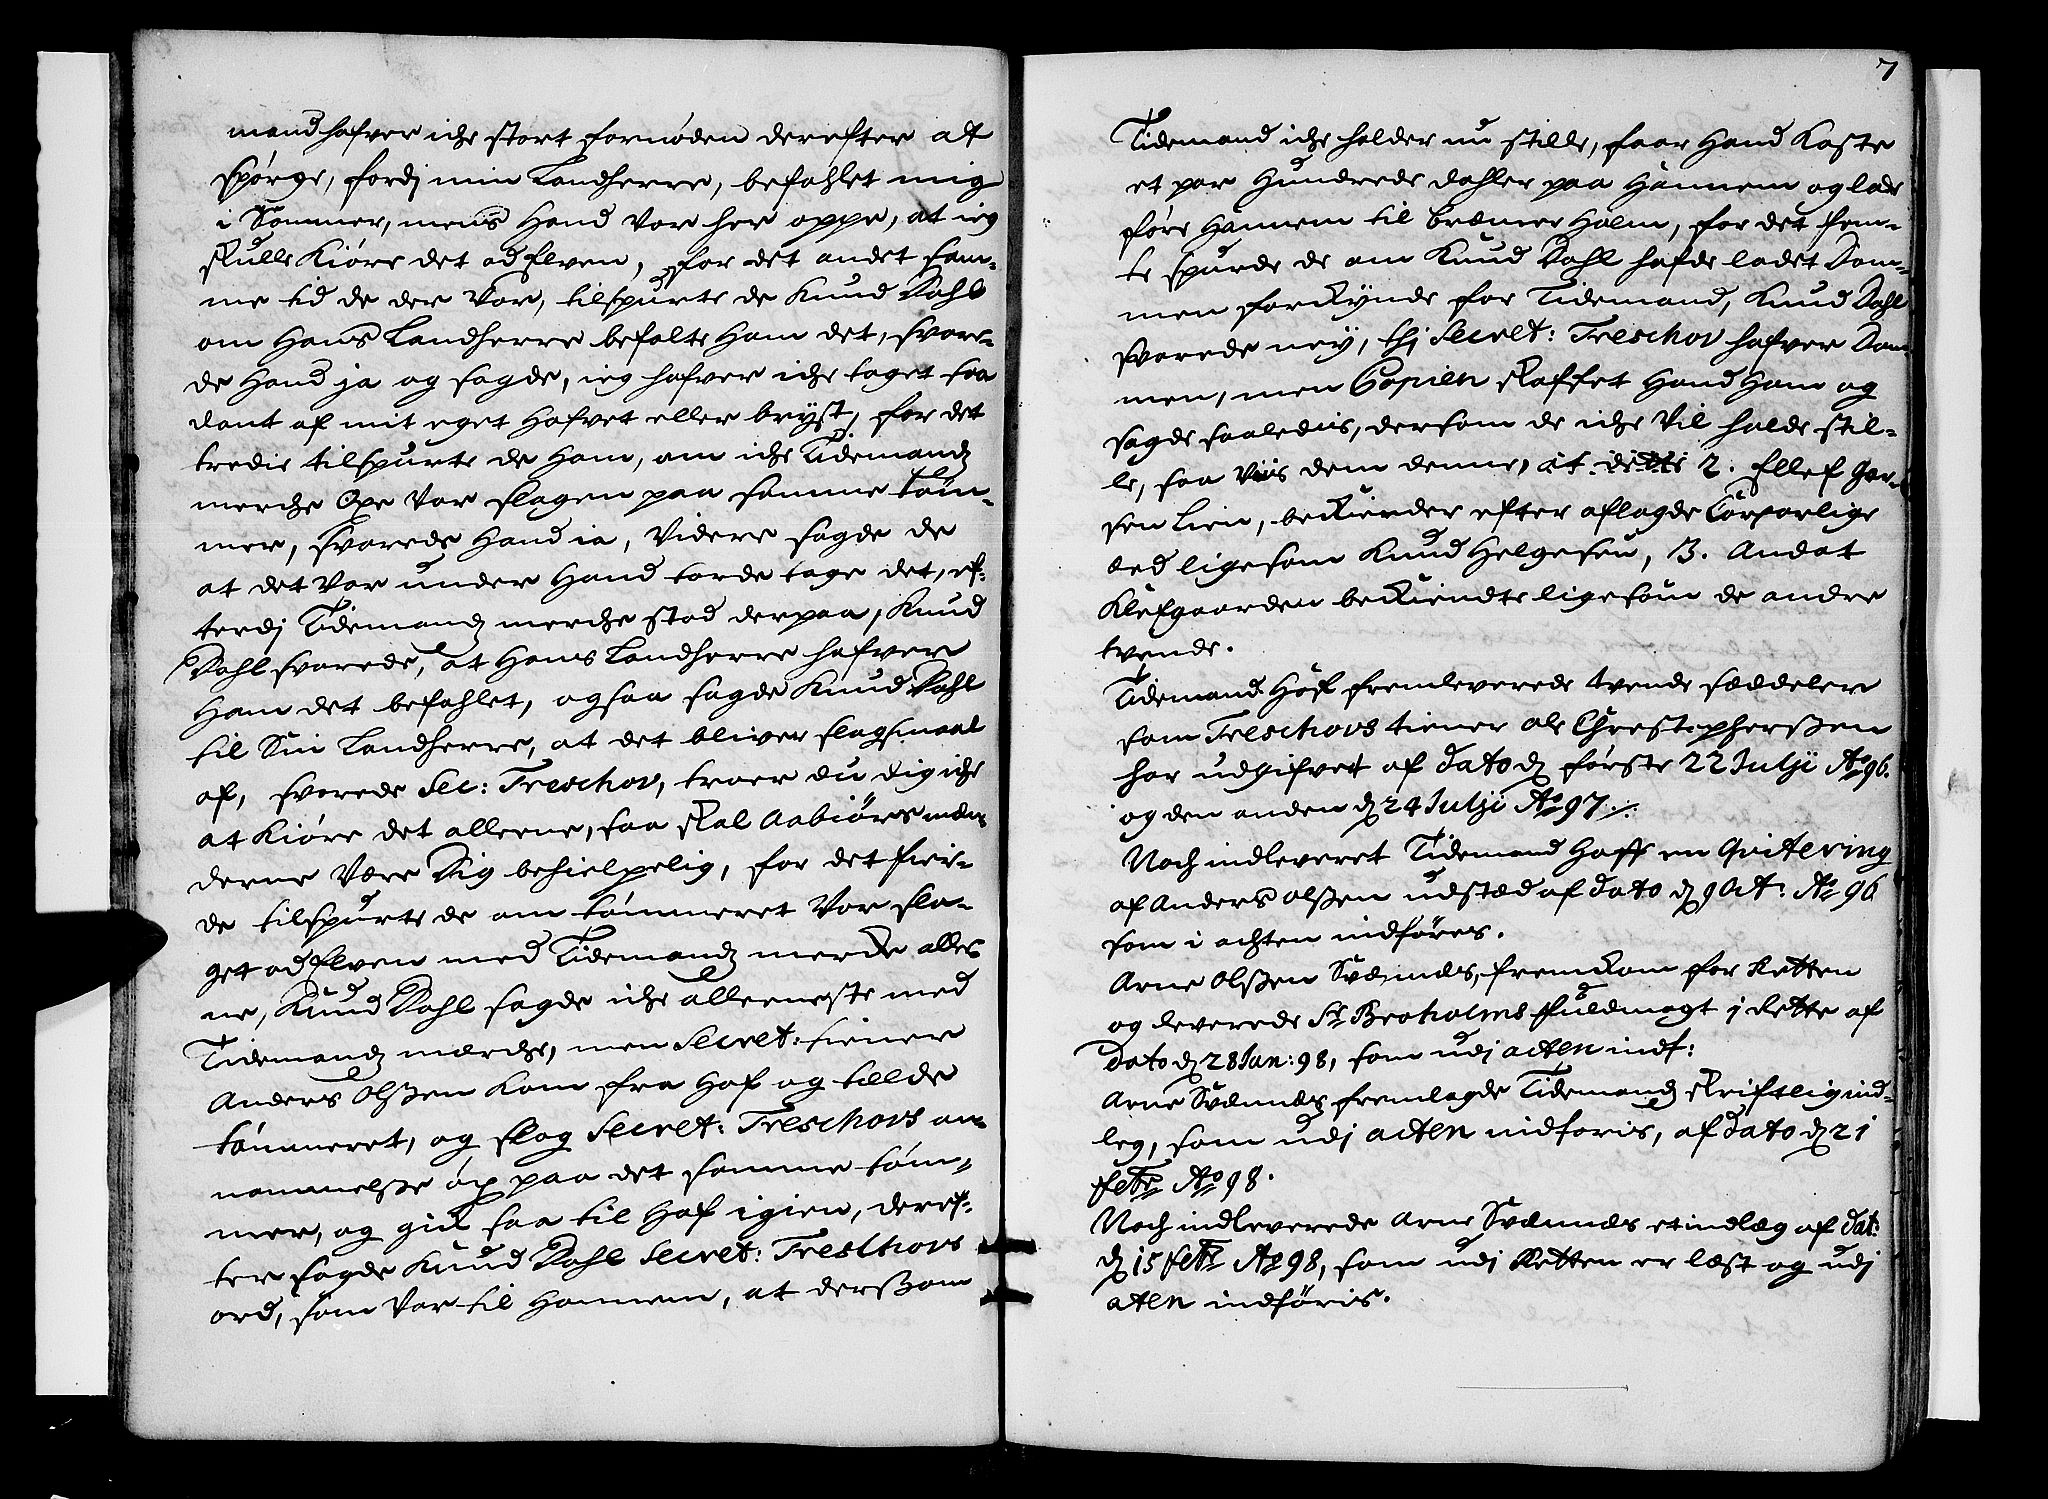 mand hafver iche stort fornøden derefter at
spørge, fordj min Landherre, befahlet mig
i Sommer, mens Hand var her oppe, at ieg
skulle Kiøre det ad Elven, for det andet sam-
me tid de der var, tilspurte de Knud Dahl
om Hans Landherre befalte Ham det, svare-
de Hand ja og sagde, ieg hafver iche taget saa
dant af mit eget Hofvet eller bryst, for det
tredie tilspurte de Ham, om iche Tidemands
merche Øxe var slagen paa samme tøm-
mer, svarede Hand ia, Videre sagde de
at det var under Hand torde tage det, ef-
terdj Tidemands merche stod derpaa, Knud
Dahl svarede, at Hans Landherre hafver
Ham det befahlet, ogsaa sagde Knud Dahl
til Sin Landherre, at det bliver slagsmaal
af, svarede Sec: Treschov, troer du dig iche
at Kiøre det alleene, saa skal Aabiørs mæn-
derne Være Dig behielpelig, for det fier-
de tilspurte de om tømmeret var sla-
get ad Elven med Tidemands merche alle-
ne, Knud Dahl sagde iche alleeneste med
Tidemands merche, men Secret: tiener
Anders Olßen kom fra Hof og tælde
tømmeret, og slog Secret: Treschovs an-
nammelße øx paa det samme tøm-
mer, og gik saa til Hof igien, deref-
ter sagde Knud Dahl Secret: Treschovs
ord, som var til Hannem, at derßom
7
Tidemand iche holder nu stille, faar Hand Koste
et par Hundrede dahler paa Hannem og lade
føre Hannem til Bremerholm, for det fem-
te spurde de om Knud Dahl hafde ladet Dom-
men forkynde for Tidemand, Knud Dahl
svarede ney, thj Secret: Treschov hafver Dom-
men, men Copien skaffet Hand Ham og
sagde saaledis, dersom de iche vil holde stil-
le, saa viis dem denne, at dette 2. Ellef
sen Lien, bekiender efter aflagde Corporlige
eed ligesom Knud Helgesen, 3. Andat
Klefgaarden bekiendte ligesom de andre
tvende.
Tidemand Hof fremleverede tvende sæddeler
som Treschovs tiener ole Christopherßen
har udgifvet af dato d første 22 Julji Ao 96.
og den anden d 24 Julji Ao 97./.
Noch indleveret Tidemand Hoff en Qvitering
af Anders olßen udstæd af dato d 9 Oct: Ao 96
som i achten indføres.
Arne Olßen Svennes, fremkom for Retten
og leverede Sr Broholms fuldmagt j Rette af
Dato d 28 Jan: 98, som udj acten indf:
Arne Svennes fremlagde Tidemands skriftlig ind-
leg, som udj acten indføris, af dato d 21
febr Ao 98.
Noch indleverede Arne Svennes et indlæg af dat:
d 15 febr Ao 98, som udj Retten er læst og udj
aten indføris.